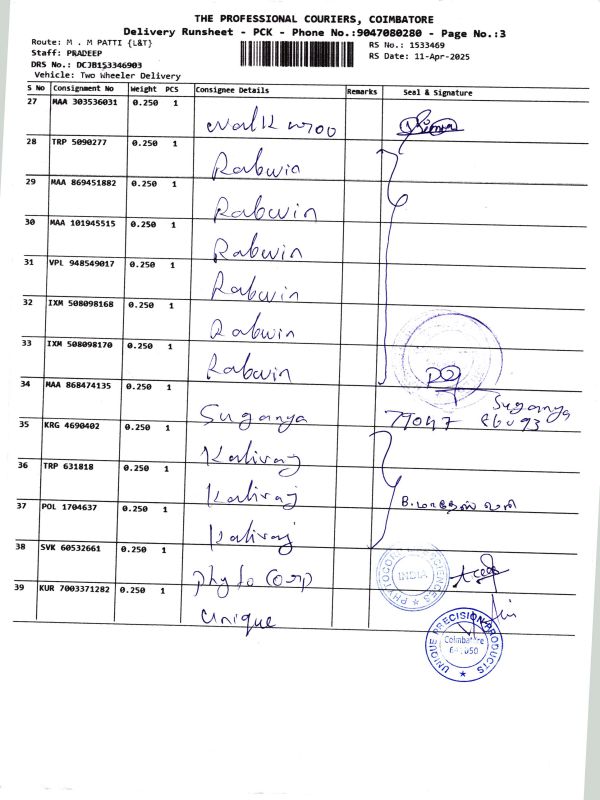 THE PROFESSIONAL COURIERS, COIMBATORE
Delivery Runsheet - PCK - Phone No.:9047080280 - Page No.:3
Route: M . M PATTI {L&T}
RS No.: 1533469
Staff: PRADEEP
RS Date: 11-Apr-2025
DRS No.: DCJB153346903
Vehicle: Two Wheeler Delivery
S No Consignment No Weight PCS Consignee Details Remarks Seal & Signature
27 MAA 303536031 0.250 1
28 TRP 5090277 0.250 1 Rabwin
29 MAA 869451882 0.250 1 Rabwin
30 MAA 101945515 0.250 1 Rabwin
31 VPL 948549017 0.250 1 Rabwin
32 IXM 508098168 0.250 1 Rabwin
33 IXM 508098170 0.250 1 Rabwin
34 MAA 868474135 0.250 1 Suganya Suganya
35 KRG 4690402 0.250 1 Kaliraj
36 TRP 631818 0.250 1 Kaliraj
37 POL 1704637 0.250 1 Kaliraj
38 SVK 60532661 0.250 1 Phyto Corp
INDIA
39 KUR 7003371282 0.250 1 Unique
UNIQUE PRECISION PRODUCTS
Coimbatore